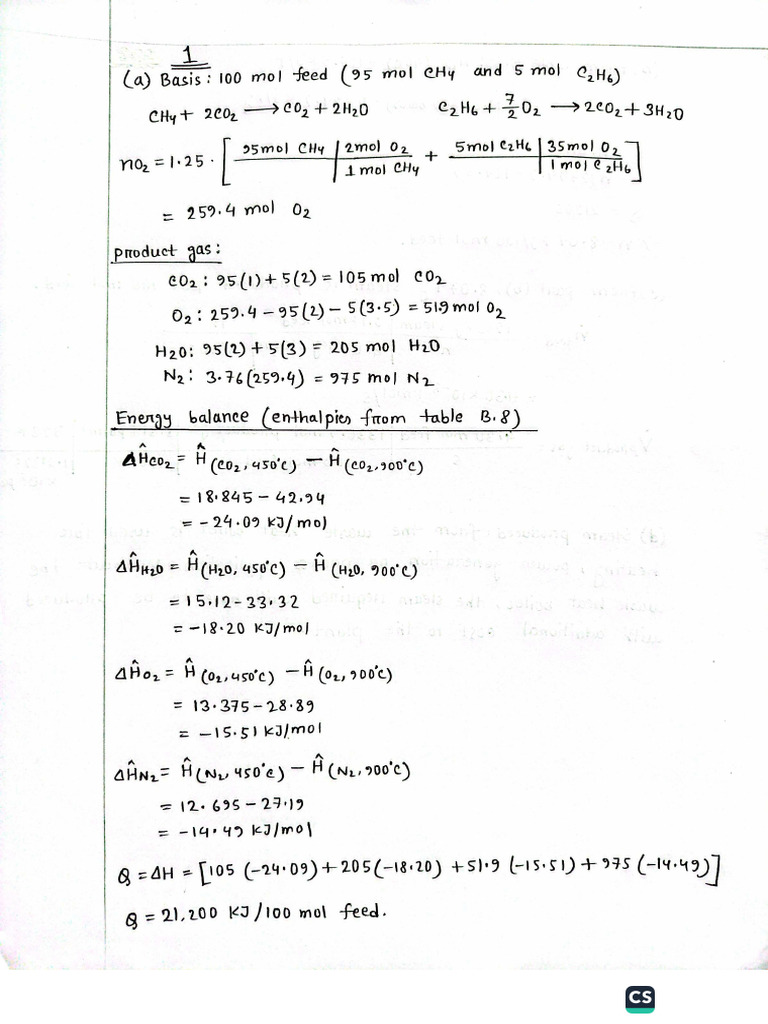 1
(a) Basis : 100 mol feed (95 mol CH4 and 5 mol C2H6)
CH4 + 2CO2 → CO2 + 2H2O C2H6 + 7/2 O2 → 2CO2 + 3H2O
nO2 = 1.25 · [ 95mol CH4 | 2mol O2 / 1 mol CH4 + 5mol C2H6 | 35mol O2 / 1 mol C2H6 ]
= 259.4 mol O2
product gas :
CO2 : 95(1) + 5(2) = 105 mol CO2
O2 : 259.4 - 95(2) - 5(3.5) = 519 mol O2
H2O : 95(2) + 5(3) = 205 mol H2O
N2 : 3.76(259.4) = 975 mol N2
Energy balance (enthalpies from table B.8)
ΔĤCO2 = Ĥ(CO2, 450°C) - Ĥ(CO2, 900°C)
= 18.845 - 42.94
= -24.09 KJ/mol
ΔĤH2O = Ĥ(H2O, 450°C) - Ĥ(H2O, 900°C)
= 15.12 - 33.32
= -18.20 KJ/mol
ΔĤO2 = Ĥ(O2, 450°C) - Ĥ(O2, 900°C)
= 13.375 - 28.89
= -15.51 KJ/mol
ΔĤN2 = Ĥ(N2, 450°C) - Ĥ(N2, 900°C)
= 12.695 - 27.19
= -14.49 KJ/mol
Q = ΔH = [105 (-24.09) + 205(-18.20) + 51.9 (-15.51) + 975 (-14.49)]
Q = 21,200 KJ/100 mol feed.
CS